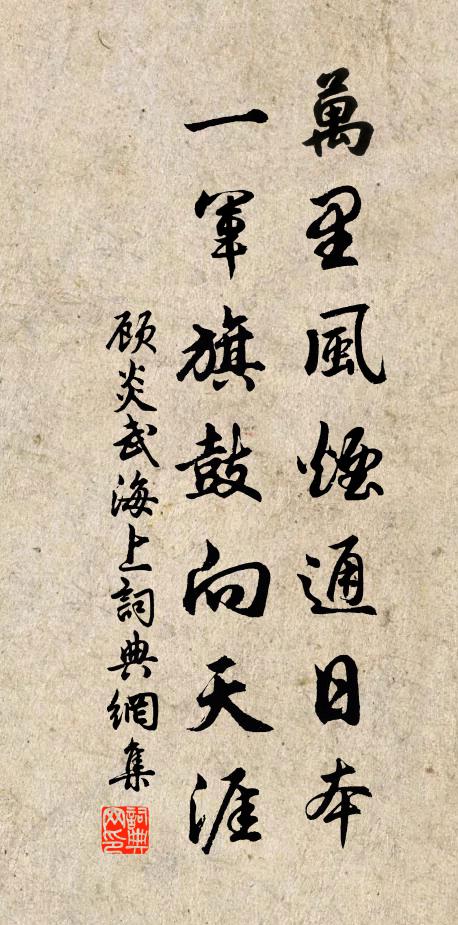 萬里風煙通日本
一軍旗鼓向天涯
顾炎武海上詞典網集
詞典网印